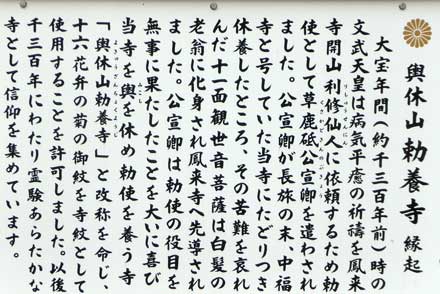 輿休山勅養寺 縁起
大宝年間(約千三百年前)時の
文武天皇は病気平癒の祈禱を鳳来
寺開山利修仙人に依頼するため勅
使として草鹿砥公宣卿を遣わされ
ました。公宣卿が長旅の末、中福
寺と号していた当寺にたどりつき
休養したところ、その苦難を哀れ
んだ十一面観世音菩薩は白髪の
老翁に化身され鳳来寺へ先導され
ました。公宣卿は勅使の役目を
無事に果たしたことを大いに喜び
当寺を輿を休め勅使を養う寺
「輿休山勅養寺」と改称を命じ、
十六花弁の菊の御紋を寺紋として
使用することを許可しました。以後
千三百年にわたり霊験あらたかな
寺として信仰を集めています。